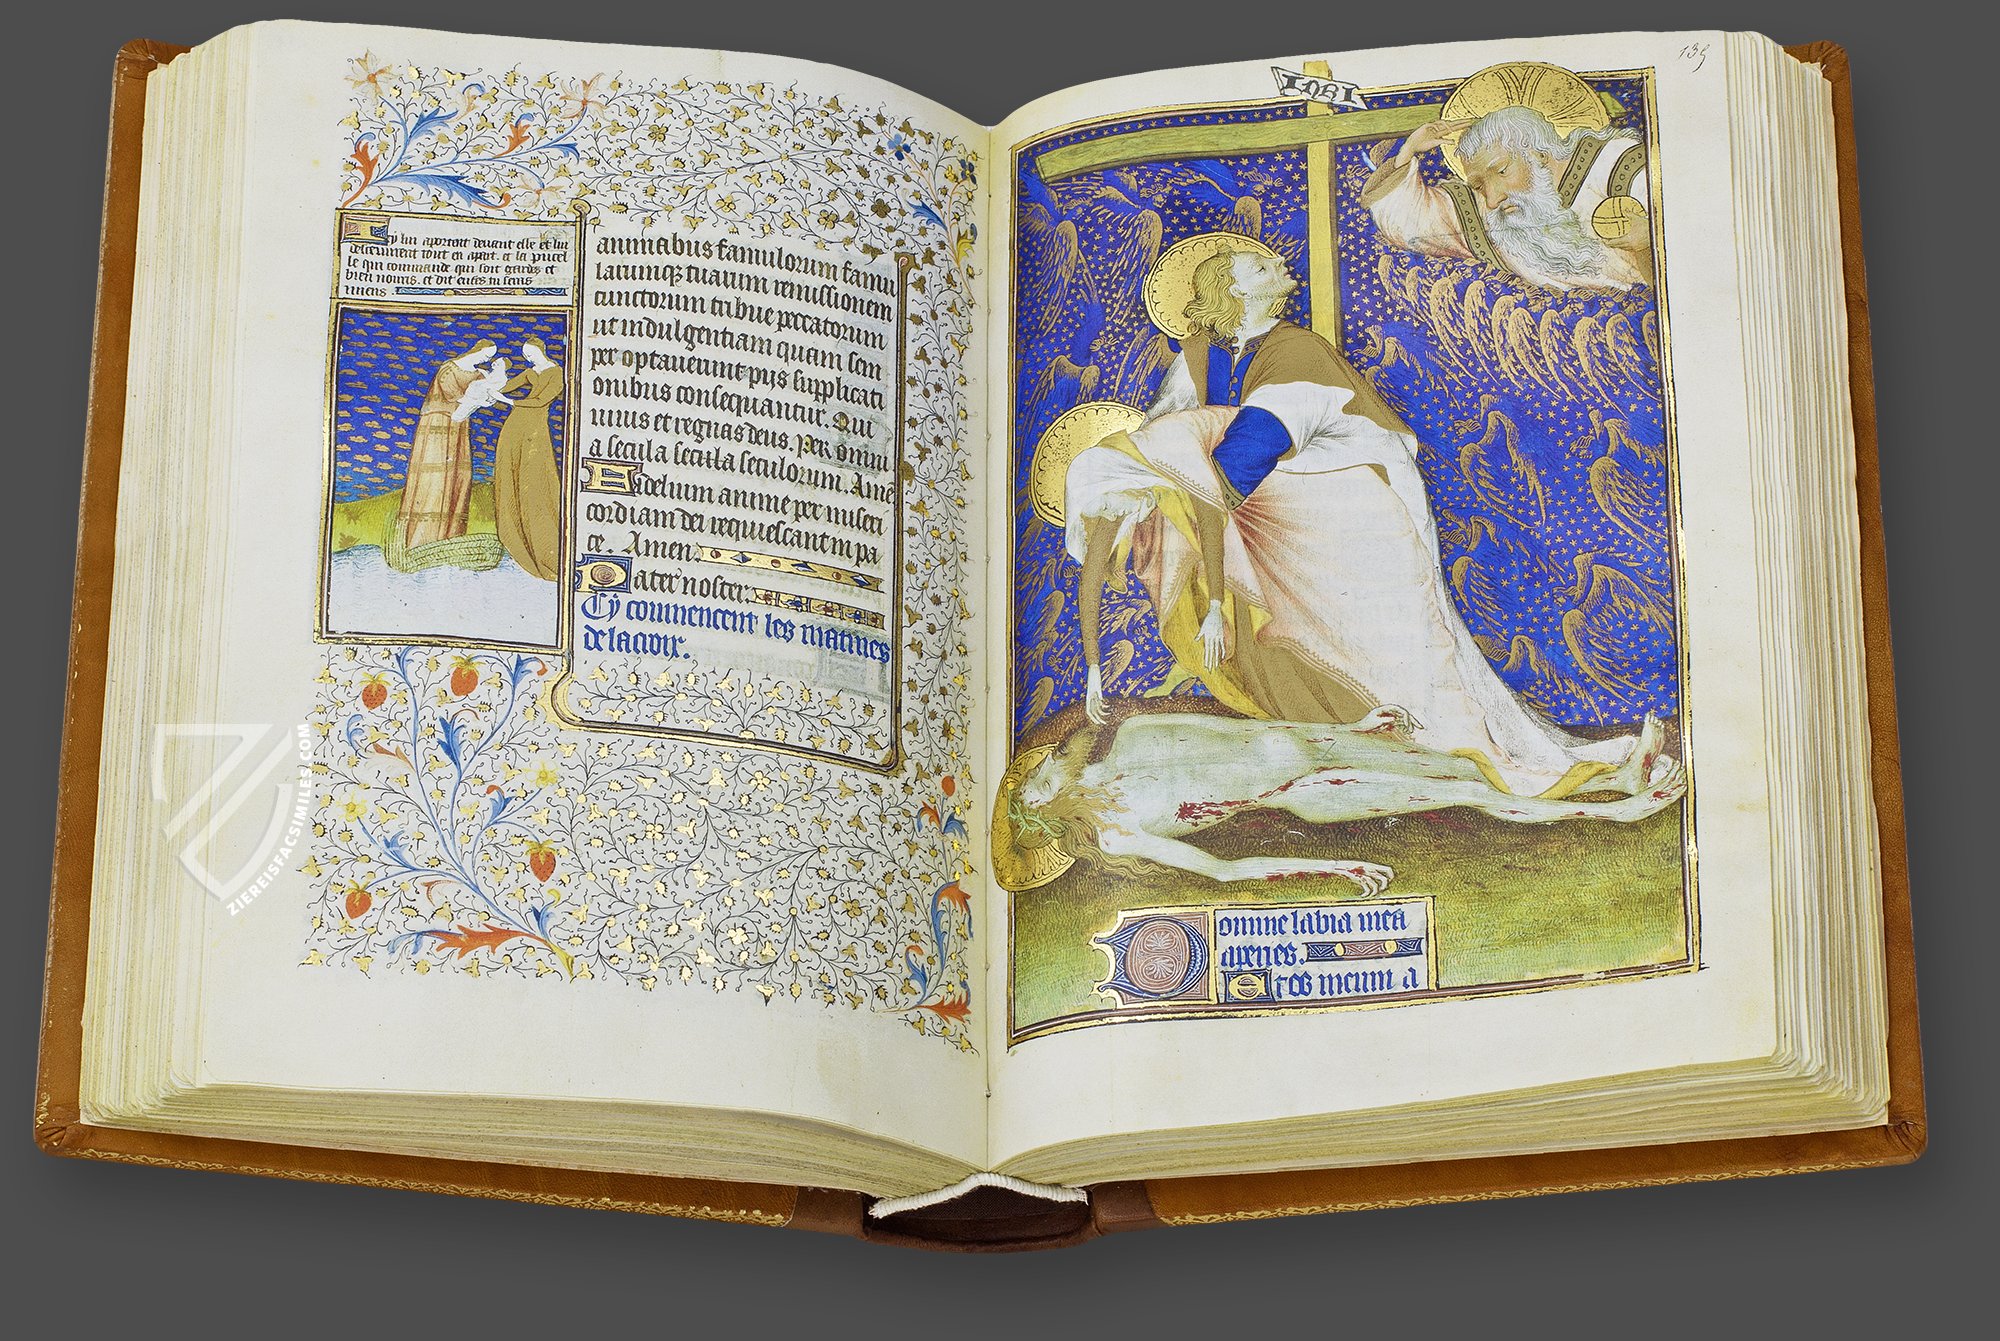 Cy lui aportent deuant elle et lui
descenurent tout en apert. et la pucel
le qui commande qui soit gardes et
bien nouris. et dit enfes tu seras
miens
animabus famulorum famu
larumqz tuarum remissionem
cunctorum tribue peccatorum
ut indulgentiam quam sem
per optauerunt pijs supplicati
onibus consequantur. Qui
uiuis et regnas deus. Per omni
a secula secula seculorum. Amē
Fidelium anime per miseri
cordiam dei requiescant in pa
ce. Amen.
Pater noster.
Cy commencent les matines
de la croix.
135
INRI
Domine labia mea
aperies.
Et os meum a
ZIEREISFACSIMILES.COM